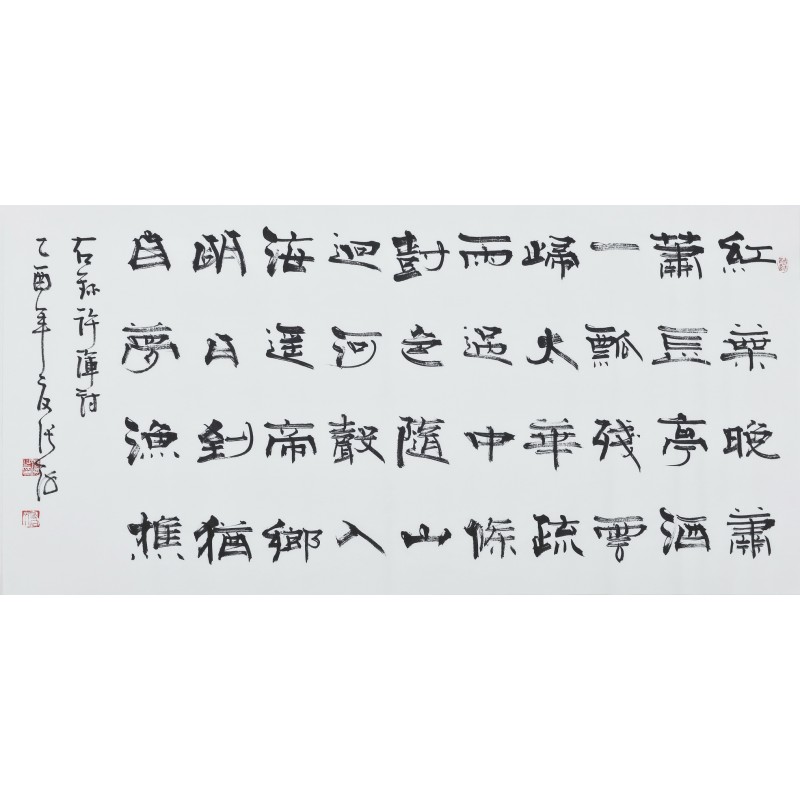 紅葉晚蕭
蕭長亭酒
一瓢殘雲
歸太華疏
雨過中條
樹色隨山
迥河聲入
海遥帝鄉
明日到猶
自夢漁樵
右錄許渾詩
乙酉年夏張